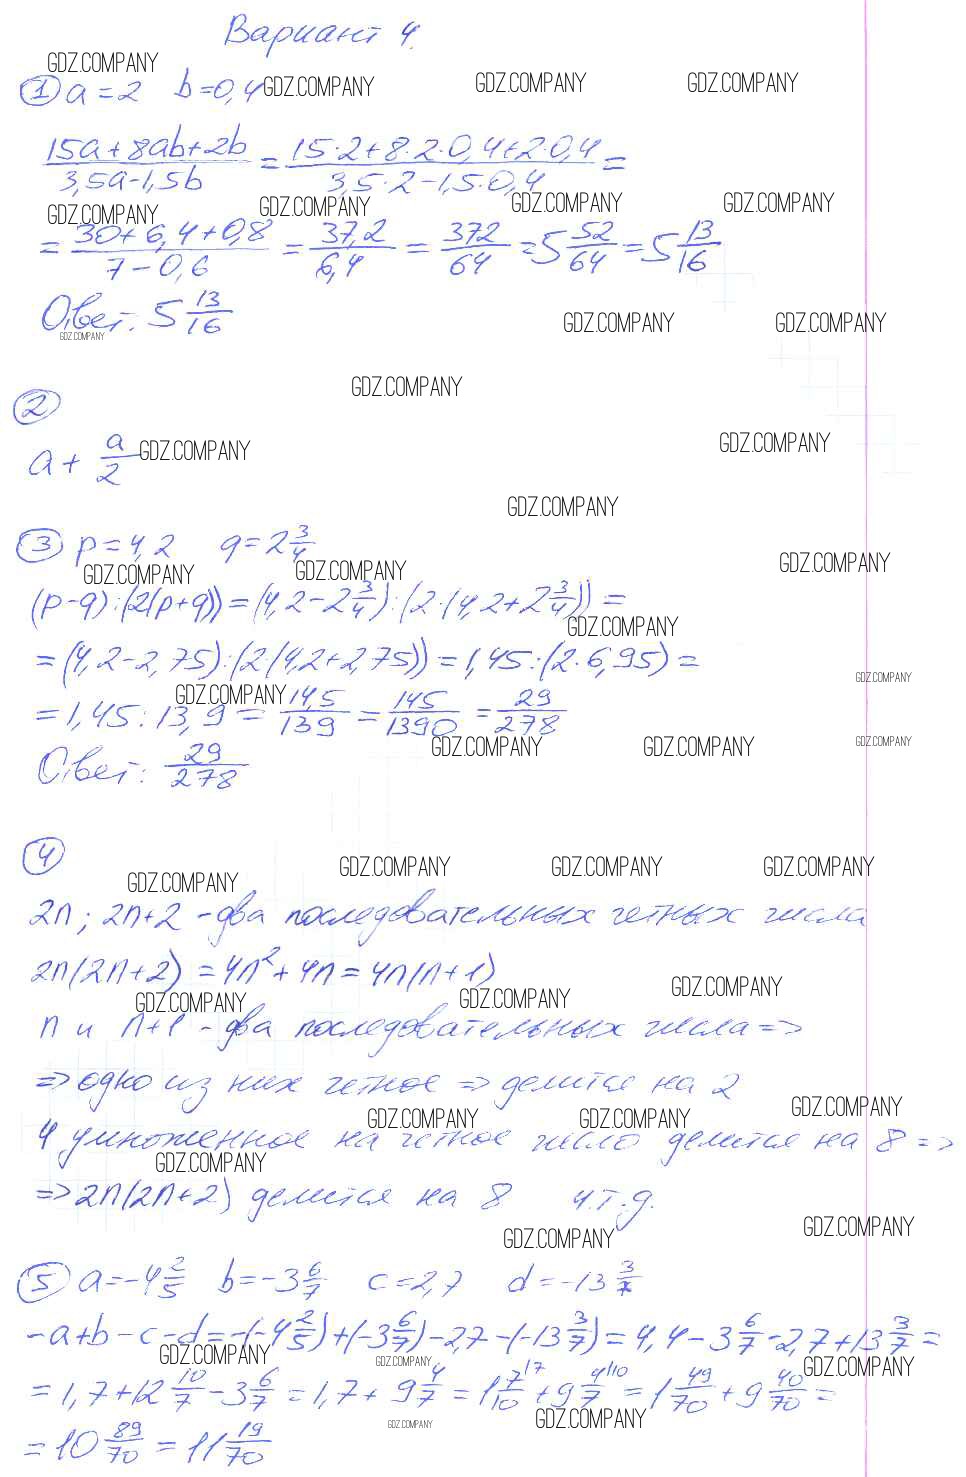 Вариант 4.
GDZ.COMPANY
① a = 2 b = 0,4 GDZ.COMPANY GDZ.COMPANY GDZ.COMPANY
(15a + 8ab + 2b)/(3,5a - 1,5b) = (15·2 + 8·2·0,4 + 2·0,4)/(3,5·2 - 1,5·0,4) =
GDZ.COMPANY GDZ.COMPANY GDZ.COMPANY GDZ.COMPANY
= (30 + 6,4 + 0,8)/(7 - 0,6) = 37,2/6,4 = 372/64 = 5 52/64 = 5 13/16
Ответ: 5 13/16
GDZ.COMPANY GDZ.COMPANY GDZ.COMPANY
GDZ.COMPANY
②
a + a/2 GDZ.COMPANY GDZ.COMPANY
GDZ.COMPANY
③ p = 4,2 q = 2 3/4
GDZ.COMPANY GDZ.COMPANY GDZ.COMPANY
(p-q):(2(p+q)) = (4,2 - 2 3/4):(2·(4,2 + 2 3/4)) =
GDZ.COMPANY
= (4,2 - 2,75):(2(4,2 + 2,75)) = 1,45:(2·6,95) =
GDZ.COMPANY GDZ.COMPANY
= 1,45 : 13,9 = 14,5/139 = 145/1390 = 29/278
GDZ.COMPANY GDZ.COMPANY GDZ.COMPANY
Ответ: 29/278
④
GDZ.COMPANY GDZ.COMPANY GDZ.COMPANY GDZ.COMPANY
2n; 2n+2 - два последовательных четных числа
2n(2n+2) = 4n² + 4n = 4n(n+1)
GDZ.COMPANY GDZ.COMPANY GDZ.COMPANY
n и n+1 - два последовательных числа =>
=> одно из них четное => делится на 2
GDZ.COMPANY GDZ.COMPANY GDZ.COMPANY
4 умноженное на четное число делится на 8 =>
GDZ.COMPANY
=> 2n(2n+2) делится на 8 ч.т.д.
GDZ.COMPANY GDZ.COMPANY
⑤ a = -4 2/5 b = -3 6/7 c = 2,7 d = -13 3/7
-a+b-c-d = -(-4 2/5) + (-3 6/7) - 2,7 - (-13 3/7) = 4,4 - 3 6/7 - 2,7 + 13 3/7 =
GDZ.COMPANY GDZ.COMPANY GDZ.COMPANY
= 1,7 + 12 10/7 - 3 6/7 = 1,7 + 9 4/7 = 1 7/10 \7 + 9 4/7 \10 = 1 49/70 + 9 40/70 =
GDZ.COMPANY GDZ.COMPANY
= 10 89/70 = 11 19/70